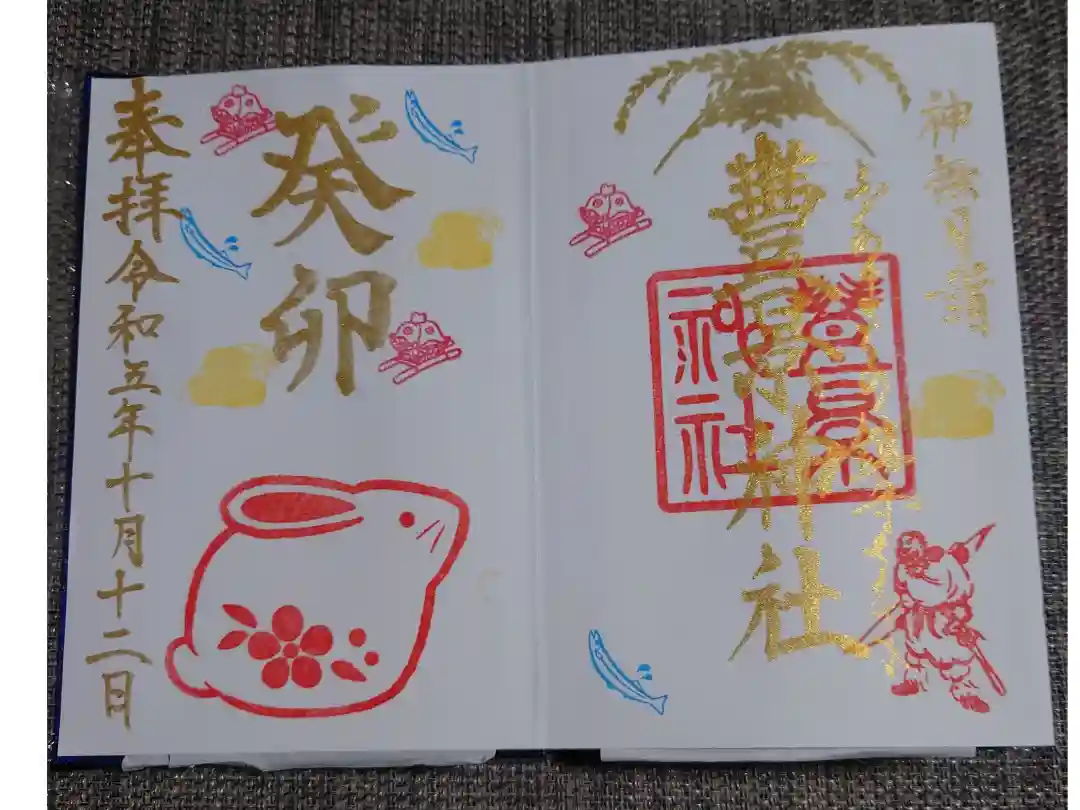 神無月詣
豊景神社
豊景神社
癸卯
奉拝令和五年十月十二日